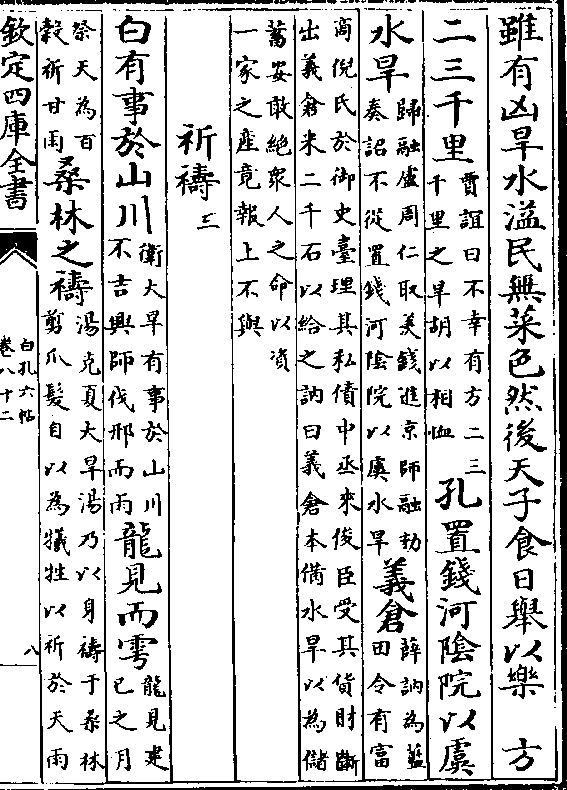 雖有凶旱水溢民無菜色然後天子食日舉以樂　方
二三千里賈誼曰不幸有方二三千里之旱胡以相恤　孔置錢河陰院以虞
水旱歸融盧周仁取羡錢進京師融劾奏詔不從置錢河陰院以虞水旱義倉薛訥為藍田令有富
商倪氏於御史臺理其私債中丞來俊臣受其貨財斷出義倉米二千石以給之訥曰義倉本備水旱以為儲
蓄安敢絶衆人之命以資一家之産竟報上不與
祈禱三
白有事於山川衛大旱有事於山川不吉興師伐邢而雨龍見而雩龍見建巳之月
祭天為百穀祈甘雨桑林之禱湯克夏大旱湯乃以身禱于桑林剪爪髮自以為犧牲以祈於天雨
欽定四庫全書
白孔六帖
卷八十二
八